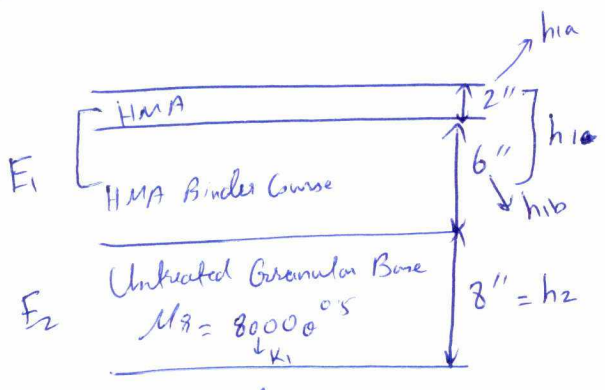 h1a
HMA
2"
h1
E1
6"
HMA Binder Course
h1b
Untreated Granular Base
E2
8" = h2
MR = 8000θ^0.5
K1